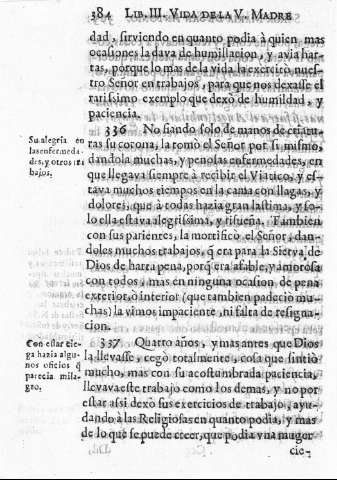 384 LIB. III. VIDA DE LA V. MADRE
dad, sirviendo en quanto podia à quien mas
ocasiones la dava de humillacion, y avia har-
tas, porque lo mas de la vida la exercitò nues-
tro Señor en trabajos, para que nos dexasse el
rarissimo exemplo que dexò de humildad, y
paciencia.
336 No fiando solo de manos de criatu-
ras su corona, la tomò el Señor por si mismo,
dandola muchas, y penosas enfermedades, en
que llegava siempre à recibir el Viatico, y es-
tava muchos tiempos en la cama con llagas, y
dolores, que à todas hazia gran lastima, y so-
lo ella estava alegrissima, y risueña. Tambien
con sus parientes, la mortificò el Señor, dan-
doles muchos trabajos, q̃ era para la Sierva de
Dios de harta pena, porq̃ era afable, y amorosa
con todos, mas en ninguna ocasion de pena
exterior, ò interior (que tambien padeciò mu-
chas) la vimos impaciente, ni falta de resigna-
cion.
337 Quatro años, y mas antes que Dios
la llevasse, cegò totalmente, cosa que sintiò
mucho, mas con su acostumbrada paciencia,
llevava este trabajo como los demas, y no por
estar assi dexò sus exercicios de trabajo, ayu-
dando à las Religiosas en quanto podia, y mas
de lo que se puede creer, que podia vna muger
cie-
Su alegria en
las enfermeda-
des, y otros tra
bajos.
Con estar cie-
ga hazia algu-
nos oficios q̃
parecia mila-
gro.